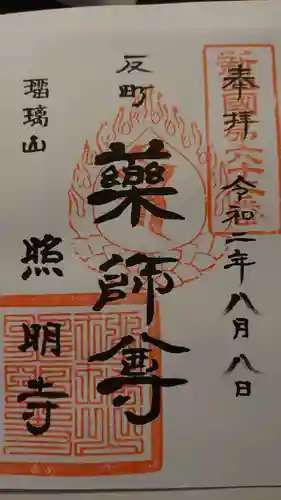 奉拝
令和二年八月八日
反町
藥師尊
瑠璃山
照明寺